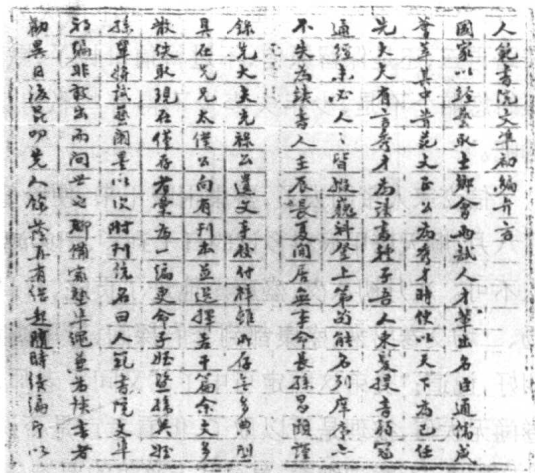 人範書院文準初編弁言
國家以經藝取士鄉會兩試人才輩出名臣通儒咸
薈萃其中昔范文正公為秀才時便以天下為己任
先大夫有言秀才為讀書種子吾人束髮授書弱冠
通經未必人人皆掇巍科登上第苟能名列庠序亦
不失為讀書人壬辰長夏閒居無事命長孫昌頤謹
錄先大夫光祿公遺文手校付梓雖所存無多典型
具在兄太僕公向有刊本並選擇若干篇余文多
散佚取現在僅存者彙為一編更命子姪暨孫與姪
孫輩將試藝闈墨以次附刊統名曰人範書院文準
初編非敢出而問世也聊備家塾準繩並為讀書者
勸異日後昆叨先人餘蔭再有繼起隨時續編所以